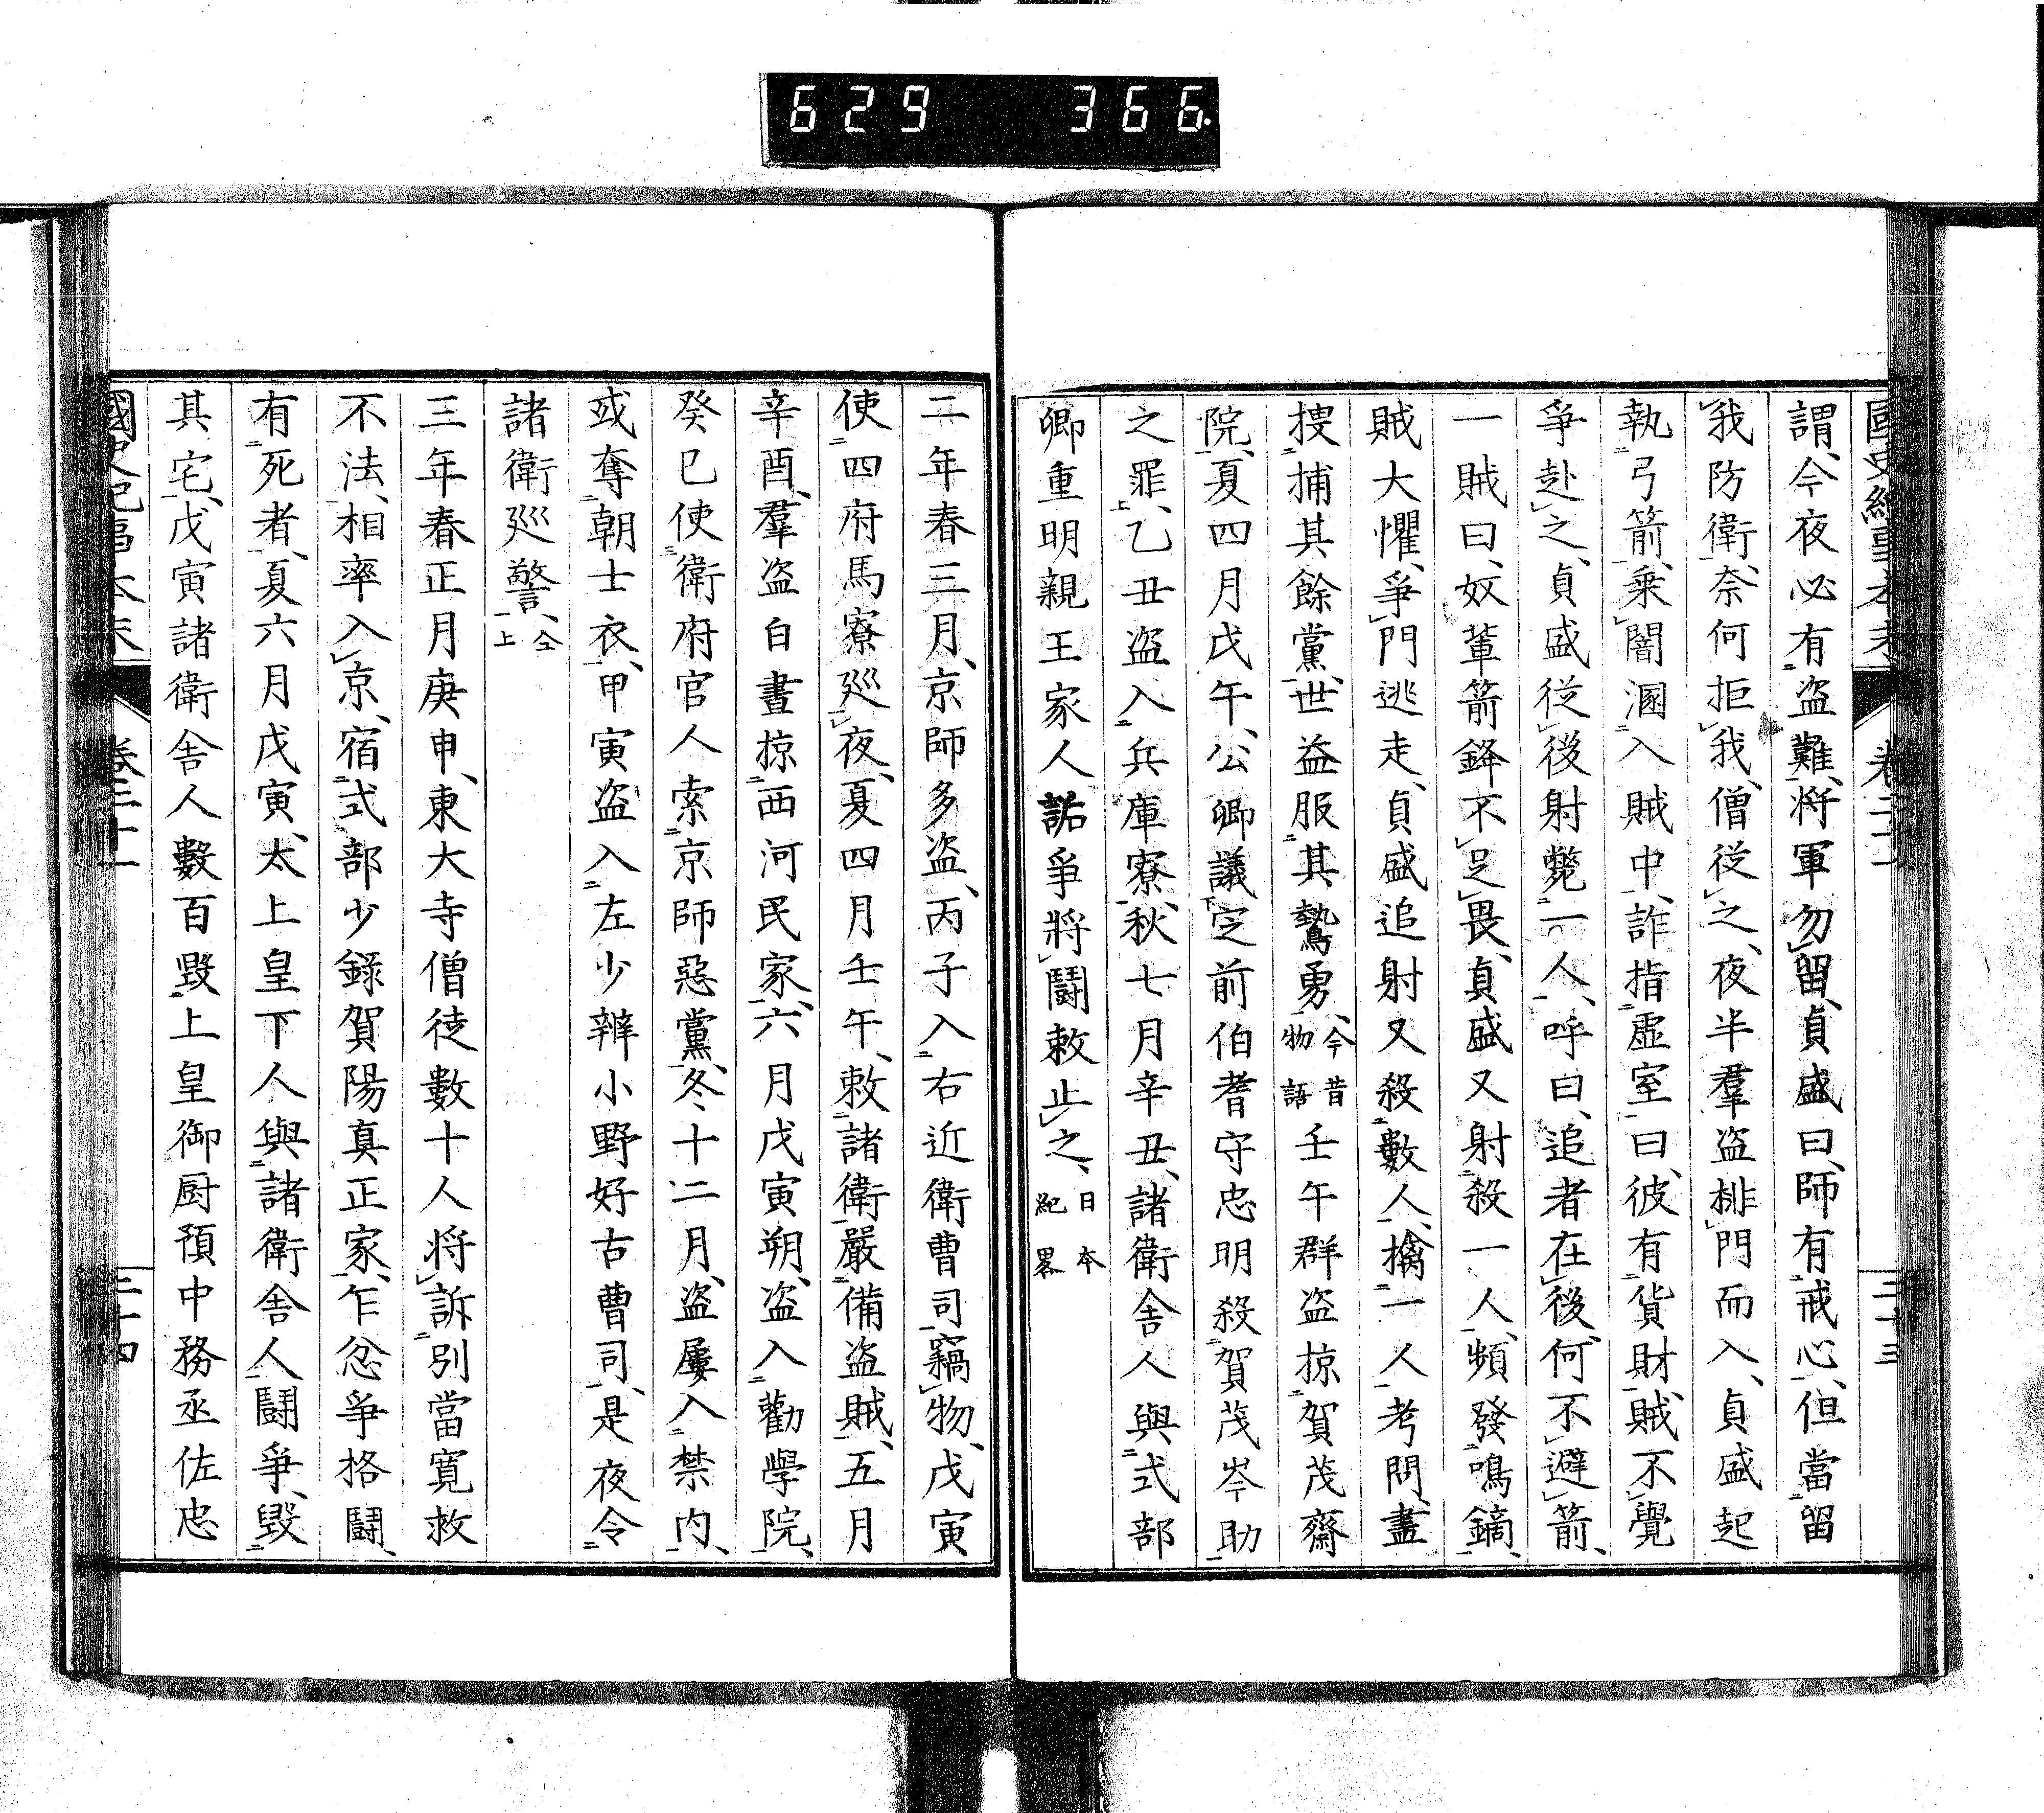 629 366.
國史紀事本末 卷二十一 三十三
謂、今夜必有盗難、将軍勿留、貞盛曰、師有戒心、但當留
我防衛、奈何拒我、僧從之、夜半羣盗排門而入、貞盛起
執弓箭、乘闇溷入賊中、詐指虚室曰、彼有貨財、賊不覺
爭赴之、貞盛從後射斃一人、呼曰、追者在後、何不避箭、
一賊曰、奴輩箭鋒不足畏、貞盛又射殺一人、頻發鳴鏑、
賊大懼、爭門逃走、貞盛追射又殺數人、擒一人考問、盡
捜捕其餘黨、世益服其驁勇、今昔物語壬午群盗掠賀茂齋
院、夏四月戊午、公卿議定前伯耆守忠明殺賀茂岑助
之罪、上乙丑盗入兵庫寮、秋七月辛丑、諸衛舎人與式部
卿重明親王家人詬爭将鬪敕止之、日本紀畧
二年春三月、京師多盗、丙子入右近衛曹司竊物、戊寅
使四府馬寮廵夜、夏四月壬午、敕諸衛嚴備盗賊、五月
辛酉、羣盗白晝掠西河民家、六月戊寅朔、盗入勸學院、
癸巳使衛府官人索京師惡黨、冬十二月、盗屢入禁内、
或奪朝士衣、甲寅盗入左少辨小野好古曹司、是夜令
諸衛廵警、仝上
三年春正月庚申、東大寺僧徒數十人将訴別當寛救
不法、相率入京、宿式部少録賀陽真正家、乍忿爭格鬪、
有死者、夏六月戊寅、太上皇下人與諸衛舎人鬪爭、毀
其宅、戊寅諸衛舎人數百毀上皇御厨預中務丞佐忠
國史紀事本末 卷二十一 三十四